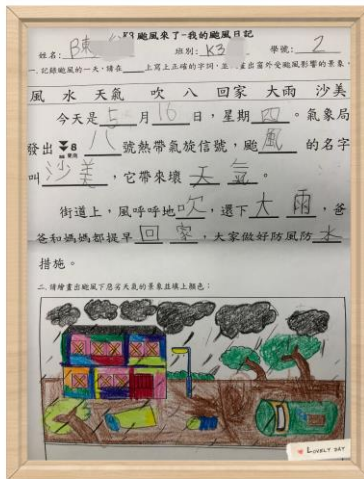 K3 颱風來了-我的颱風日記
姓名: 陳 班別: K3 學號: 2
一. 記錄颱風的一天,請在____上寫上正確的字詞,並畫出窗外受颱風影響的景象。
風 水 天氣 吹 八 回家 大雨 沙美
今天是5月16日,星期四。氣象局
發出 8 八號熱帶氣旋信號,颱風的名字
叫沙美,它帶來壞天氣。
街道上,風呼呼地吹,還下大雨,爸
爸和媽媽都提早回家,大家做好防風防水
措施。
二. 請繪畫出颱風下惡劣天氣的景象並填上顏色:
LOVELY DAY